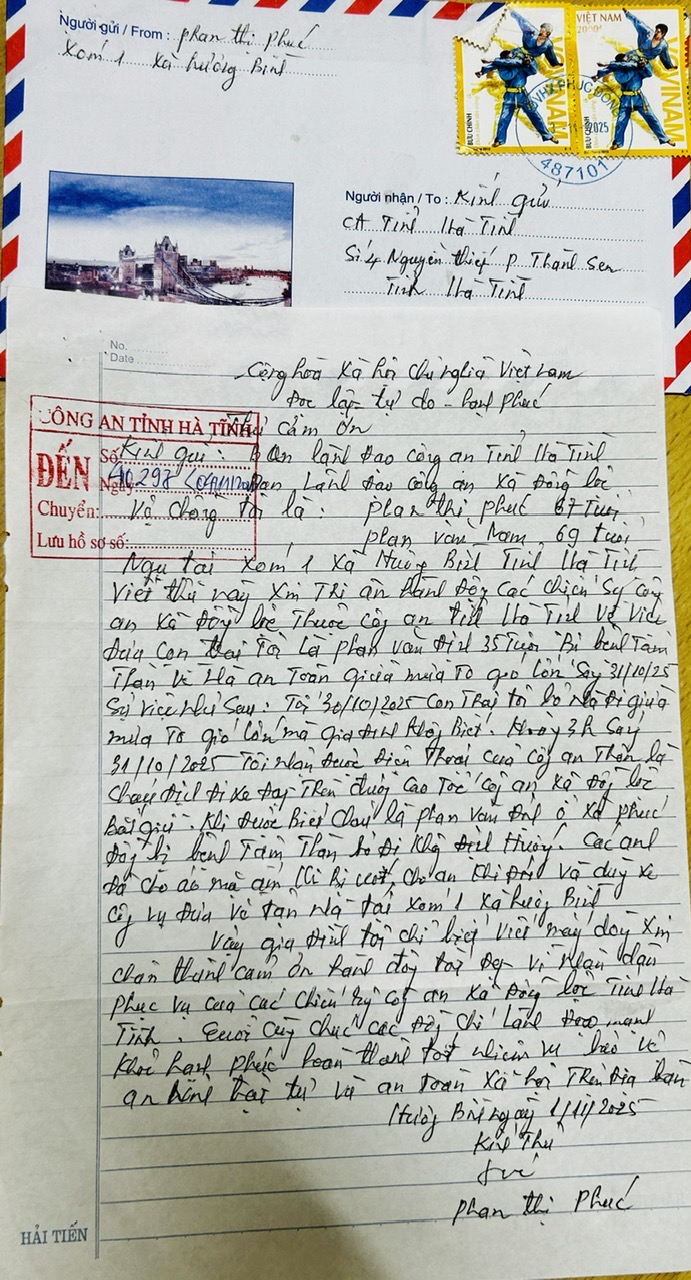 Người gửi / From : phan thị phúc
Xóm 1 xã hương Bình
VIỆT NAM
2000đ
BƯU CHÍNH
VINAM
BƯU CHÍNH
VINAM
PHÚC ĐỒNG
2025
487101
Người nhận / To : Kính gửi
CA Tỉnh Hà Tĩnh
Số 4 Nguyễn thiếp P. Thành Sen
Tỉnh Hà Tĩnh
No.
Date
Cộng hoà xã hội chủ nghĩa Việt nam
Độc lập - tự do - hạnh phúc
Thư cảm ơn
CÔNG AN TỈNH HÀ TĨNH
ĐẾN
Số
Ngày
Chuyển:
Lưu hồ sơ số:
Kính gửi: Ban lãnh Đạo công an Tỉnh Hà Tĩnh
Ban Lãnh Đạo công an xã Đồng lộc
Vợ chồng tôi là: phan thị phúc 67 Tuổi
phan văn Nam 69 tuổi
Ngụ tại xóm 1 xã Hương Bình Tỉnh Hà Tĩnh
Viết thư này xin Tri ân hành Động các chiến Sỹ công
an xã Đồng lộc Thuộc công an tỉnh Hà Tĩnh Về Việc
Đưa con trai Tôi là phan văn Định 35 Tuổi Bị bệnh Tâm
Thần Về nhà an Toàn giữa mưa To gió lớn Sáng 31/10/25
Sự việc như Sau: Tối 30/10/2025 con Trai tôi bỏ nhà đi giữa
mưa To gió lớn mà gia Đình không Biết. 3h Sáng
31/10/2025 Tôi nhận Được Điện Thoại của công an Thông là
cháu Định Đi xe Đạp Trên đường cao Tốc công an xã Đồng lộc
Bắt giữ. Khi Được Biết cháu là phan văn Định ở xã phúc
Đồng bị bệnh Tâm Thần bỏ Đi không Định Hướng. Các anh
Đã cho áo mà ấm Vì Bị ướt, cho ăn khi Đói Và dùng xe
công vụ Đưa Về tận nhà tại xóm 1 xã hương Bình
Vậy gia Đình tôi chỉ biết Viết mấy dòng xin
chân thành cảm ơn hành động tốt Đẹp Vì nhân dân
phục vụ của các chiến sỹ công an xã Đồng lộc Tỉnh Hà
Tĩnh. Cuối cùng chúc các Đồng chí Lãnh Đạo mạnh
khoẻ hạnh phúc hoàn thành tốt nhiệm vụ bảo vệ
an ninh trật tự và an toàn xã hội Trên Địa bàn
Hương Bình ngày 1/11/2025
Kính Thư
phan thị phúc
HẢI TIẾN